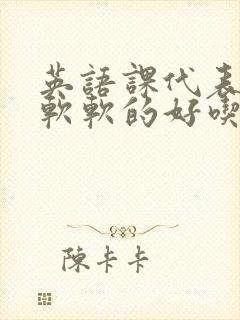 英語課代表
軟軟的好喫
陳卡卡